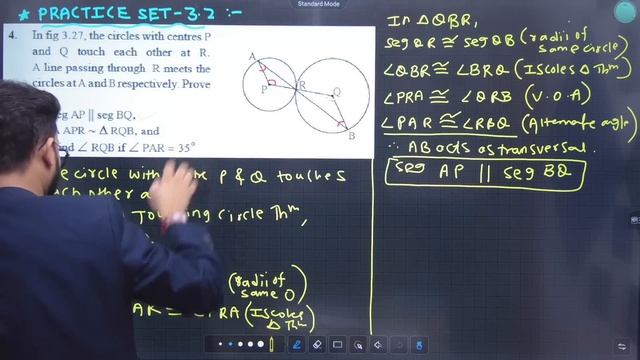 Standard Mode
* PRACTICE SET-3.2 :-
4. In fig 3.27, the circles with centres P
and Q touch each other at R.
A line passing through R meets the
circles at A and B respectively. Prove
eg AP || seg BQ.
APR ~ Δ RQB, and
nd ∠ RQB if ∠ PAR = 35°
A
P
R
Q
B
e circle with P & Q touches
each other a
Touching circle Thm,
(radii of
same O)
AR ≅ PRA (Iscoles
Δ Thm)
In Δ QBR,
seg QR ≅ seg QB (radii of
same circle)
∠QBR ≅ ∠BRQ (Iscoles Δ Thm)
∠PRA ≅ ∠QRB (V.O.A)
∠PAR ≅ ∠RBQ (Alternate angle)
∴ AB acts as transversal.
seg AP || seg BQ